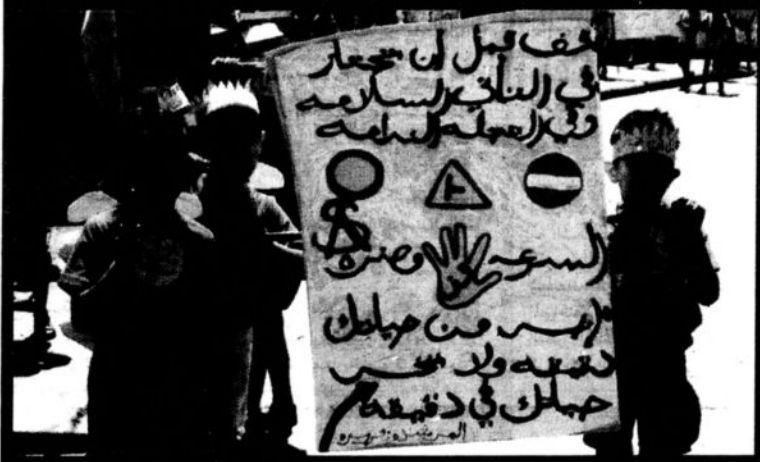 قف قبل أن
في التأني السلامه
وفي العجله الندامه
السرعه
اخسر من حياتك
دقيقه ولا تخسر
حياتك في دقيقه